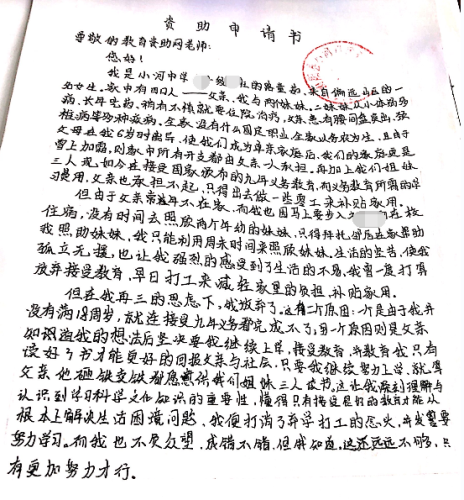 资助申请书
尊敬的教育资助网老师：
您好！
我是小河中学 级 班的 ，来自偏远山区的一
名女生。家中有四口人——父亲、我与两个妹妹。二妹妹从小体弱多
病、长年吃药，稍有不慎就要住院治疗，父亲患有腰间盘突出、
椎病等多种疾病。全家没有什么固定职业，全家以务农为生，且由于
父母在我6岁时离异，使我们成为单亲家庭后，我们的家庭更是
雪上加霜，则家中所有开支都由父亲一人承担，再加上我们姐妹
三人现如今在接受国家颁布的九年义务教育，而义务教育所需的学
习费用，父亲也承担不起，只得出去做一些零工来补贴家用。
但由于父亲常年不在家，而我也因马上要步入 在校
住宿，没有时间去照顾两个年幼的妹妹，只得拜托邻居在家帮助
我照助妹妹，我只能利用周末时间来照顾妹妹。生活的坚苦，使我
孤立无援，也让我强烈的感受到了生活的不易，我曾一度打算
放弃接受教育，早日打工来减轻家里的负担，补贴家用。
但在我再三的思虑下，我放弃了。这有二个原因：一是由于我并
没有满18周岁，就连接受九年义务都完成不了；另一个原因则是父亲
知识滋我的想法后坚决要我继续上学，接受教育，并教育我只有
读好了书才能更好的回报父亲与社会，只要我继续努力上学，就算
父亲他砸锅卖铁都愿意供我们姐妹三人读书，这让我深刻理解与
认识到学习科学文化知识的重要性，懂得只有接受良好的教育才能从
根本上解决生活困境问题，我便打消了弃学打工的念头，并发誓要
努力学习。而我也不负众望，成绩不错，但我知道，这还远远不够，只
有更加努力才行。